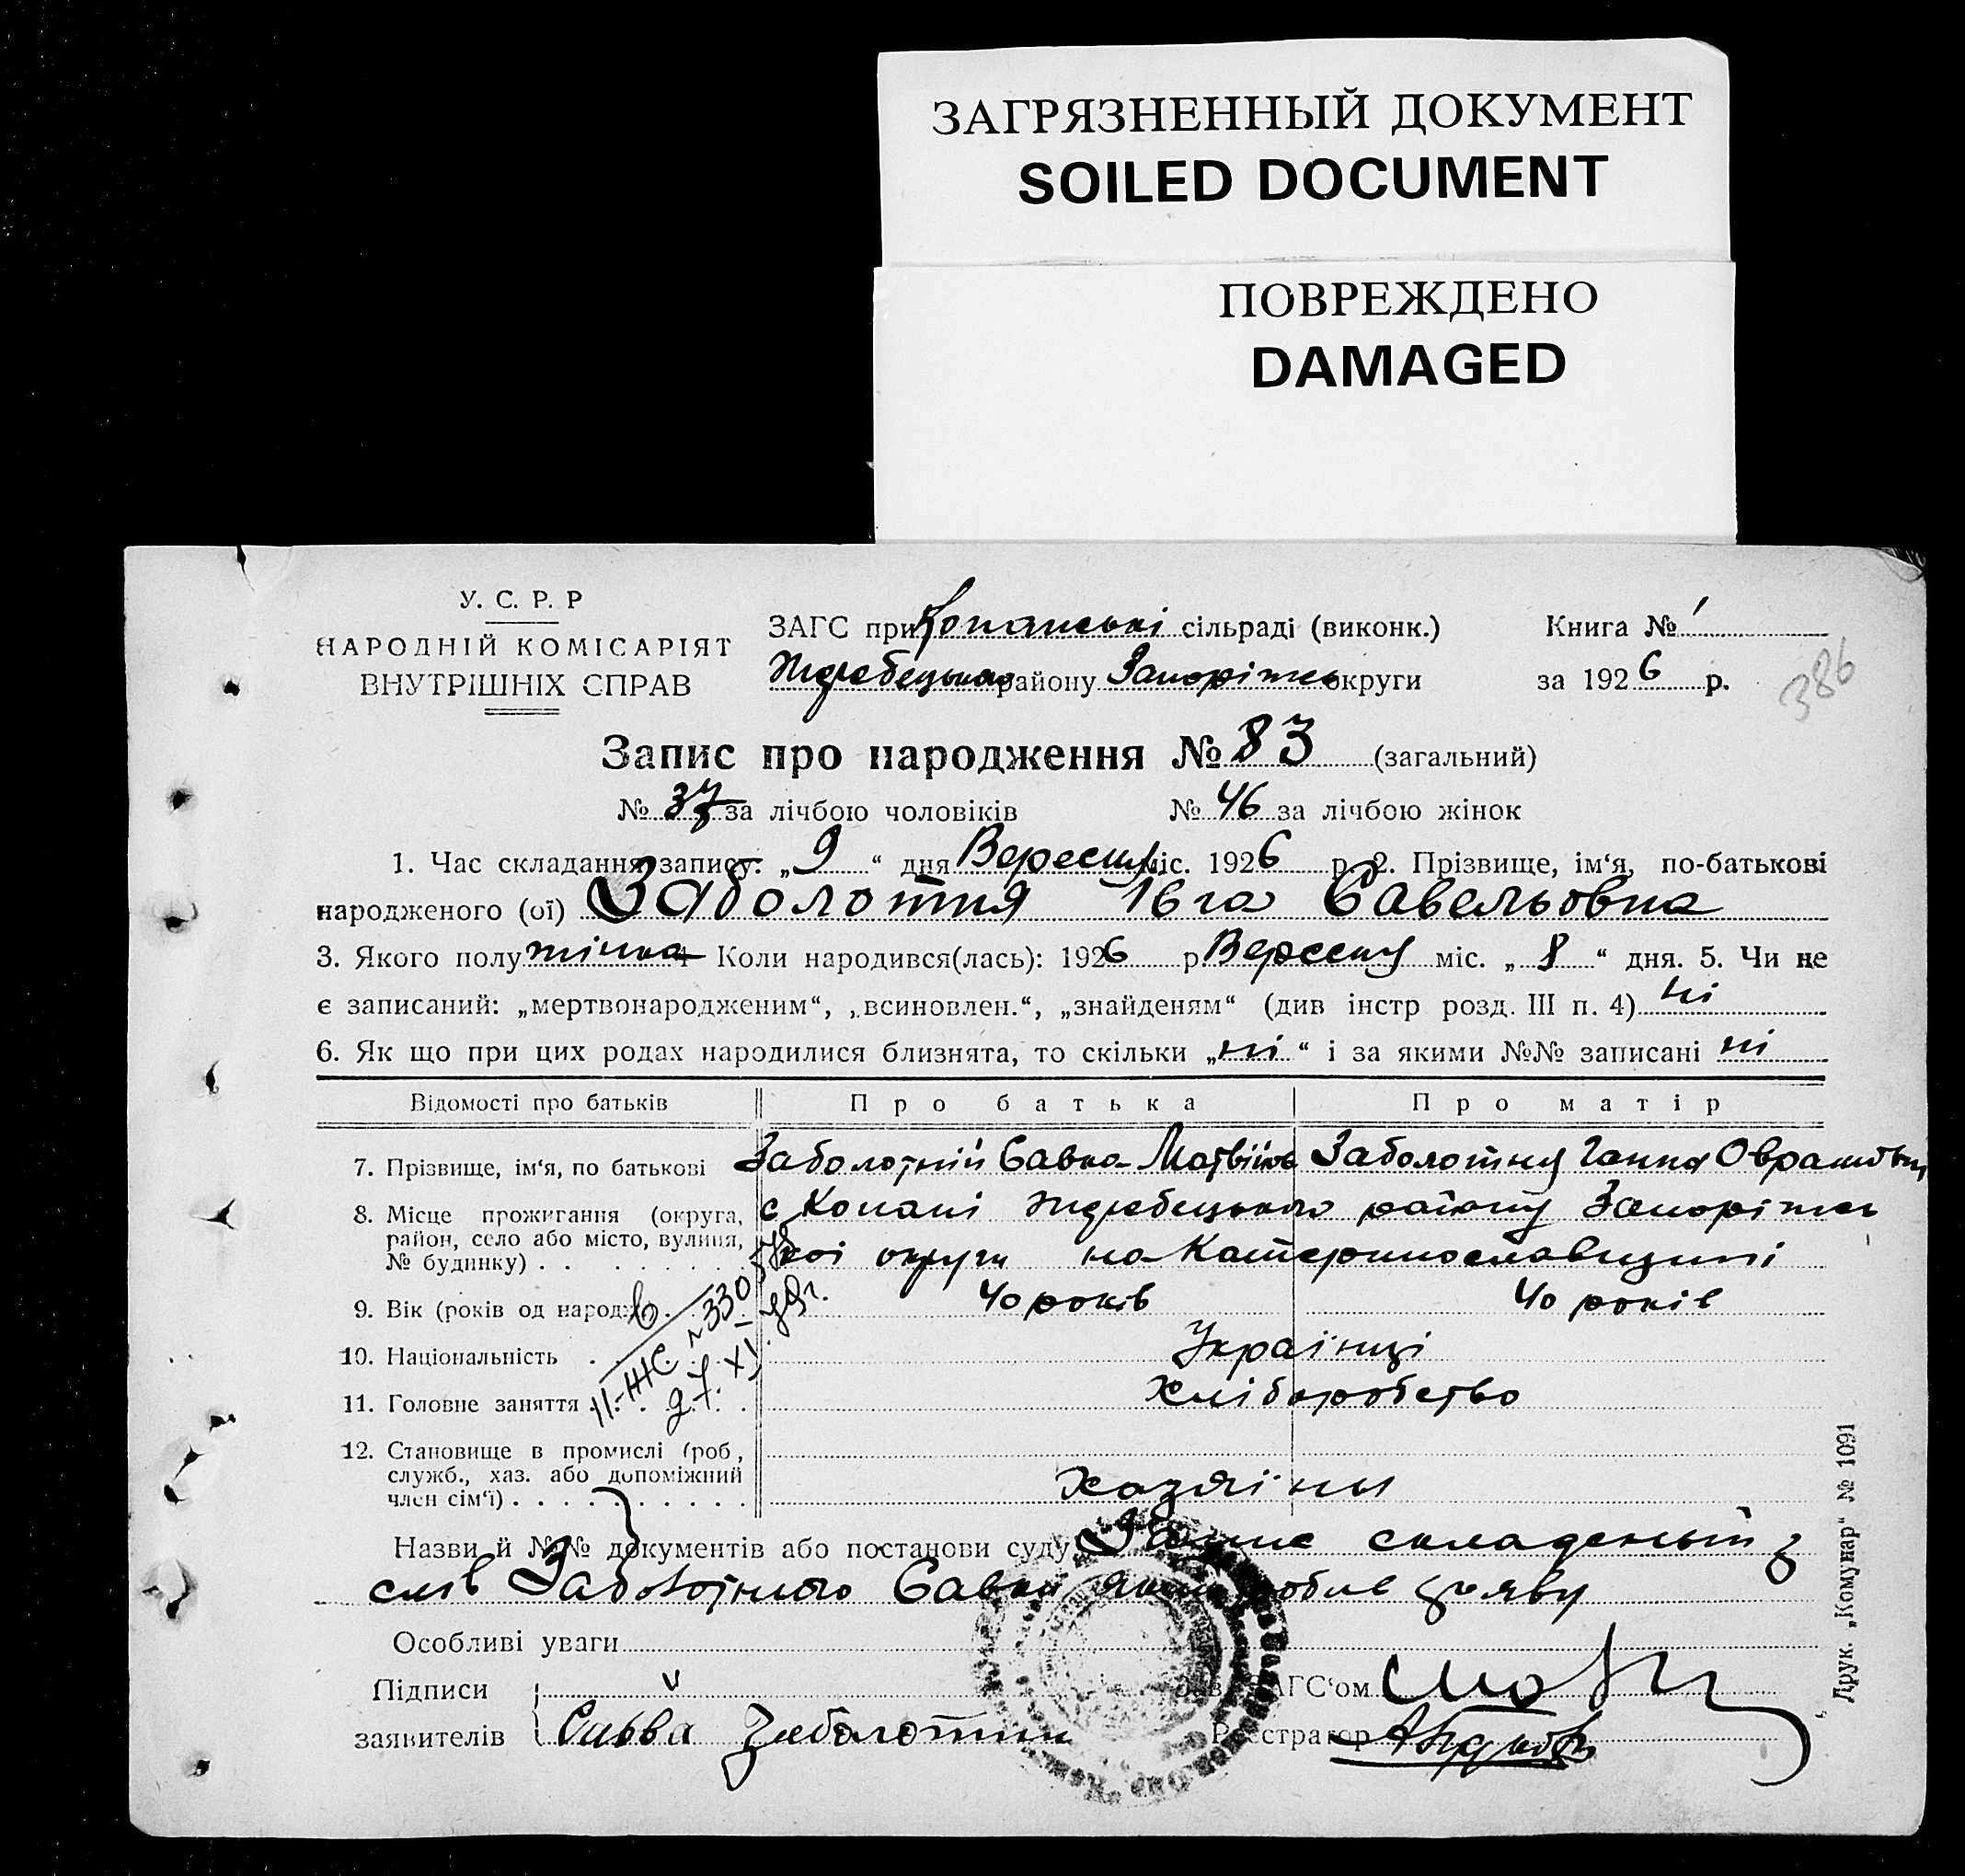 ЗАГРЯЗНЕННЫЙ ДОКУМЕНТ
SOILED DOCUMENT
ПОВРЕЖДЕНО
DAMAGED
У. С. Р. Р
НАРОДНІЙ КОМІСАРІЯТ
ВНУТРІШНІХ СПРАВ
ЗАГС при Копанські сільраді (виконк.)
Жеребецького району Запоріжсь округи
Книга № 1
за 1926 р.
386
Запис про народження № 83 (загальний)
№ 37 за лічбою чоловіків № 46 за лічбою жінок
1. Час складання запису: „ 9 “ дня Вересня міс. 1926 р. 2. Прізвище, ім‘я, по-батькові
народженого (ої) Заболотня Івга Савельовна
3. Якого полу жінка 4 Коли народився(лась): 1926 р Вересня міс. „ 8 “ дня. 5. Чи не
є записаний: „мертвонародженим“, „всиновлен.“, „знайденям“ (див інстр розд. III п. 4) ні
6. Як що при цих родах народилися близнята, то скільки „ ні “ і за якими №№ записані ні
Відомості про батьків Про батька Про матір
7. Прізвище, ім‘я, по батькові Заболотній Савка Матвійов Заболотня Ганна
8. Місце прожигання (округа, с Копані Жеребецького району Запоріжсь
район, село або місто, вулиця, кої округи на Катеринославщині
№ будинку) . .
9. Вік (років од народж 40 років 40 років
10. Національність Українці
11. Головне заняття Хліборобство
II-ЖС №330
12. Становище в промислі (роб,
служб., хаз. або допоміжний
член сім‘ї) . . . . . . . . . . Хазяїни
Назви й №№ документів або постанови суду Запис складений з
слів Заболотного Савки який робив заяву
Особливі уваги
Підписи
Зав. ЗАГС‘ом
заявителів Савва Заболотни
Реєстратор
Друк. „Комунар“ № 1091